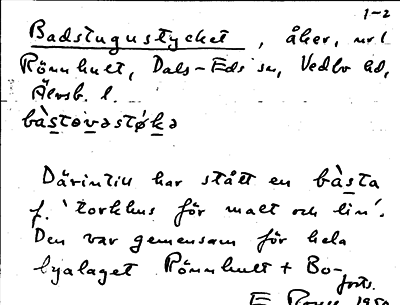 1-2
Badstugustycket, åker, nr 1
Rönnhult, Dals-Eds sn, Vedbo hd,
Älvsb. l.
bàstəvəstøkə
Därintill har stått en bàsta
f. 'torkhus för malt och lin'.
Den var gemensam för hela
byalaget Rönnhult + Bo-
forts.
E 1950